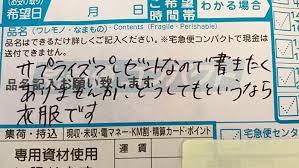 ご希望 月 日 ご希望
時間帯
品名(ワレモノ・なまもの)・Contents (Fragile・Perishable)
品名はできるだけ詳しくご記入ください。※宅急便コンパクトで現金は
送付できません。
サプライズプレゼントなので書きたく
ありませんがどうしてもというなら
衣服です
品名記入お願い致します
集荷・持込 現収・未収・電マネー・KM割・精算カード・ポイント
専用資材使用 宅急便センター